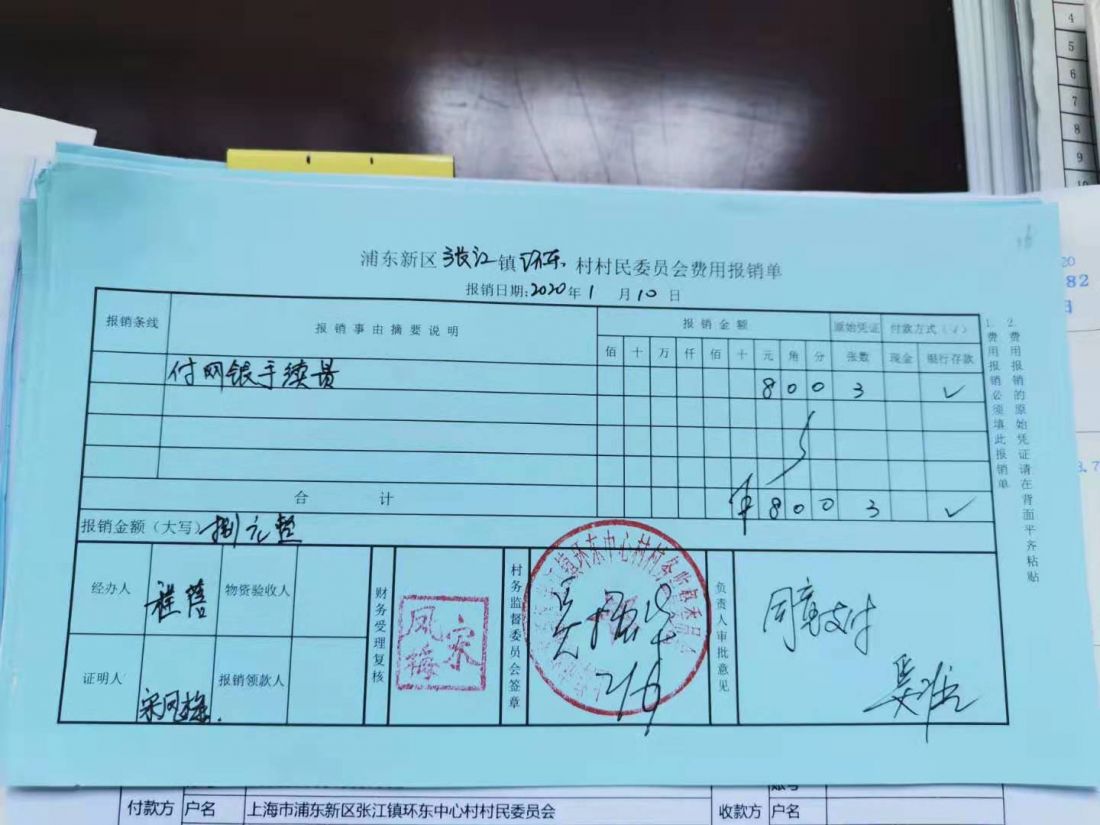 浦东新区张江镇环东村村民委员会费用报销单
报销日期:2020年1月10日
报销条线 报销事由摘要说明 报销金额 原始凭证 付款方式(√)
佰 十 万 仟 佰 十 元 角 分 张数 现金 银行存款
付网银手续费 8 0 0 3 √
合计 ¥ 8 0 0 3 √
报销金额(大写) 捌元整
经办人 物资验收人
证明人 宋凤梅 报销领款人
财务受理复核
宋凤梅
村务监督委员会签章
镇环东中心村村务监督委员
2/6
负责人审批意见
同意支付
1.费用报销必须填此报销单
2.费用报销的原始凭证请在背面平齐粘贴
付款方 户名 上海市浦东新区张江镇环东中心村村民委员会 收款方 户名
账号
4
5
6
7
8
9
10
20
82
日
3.7